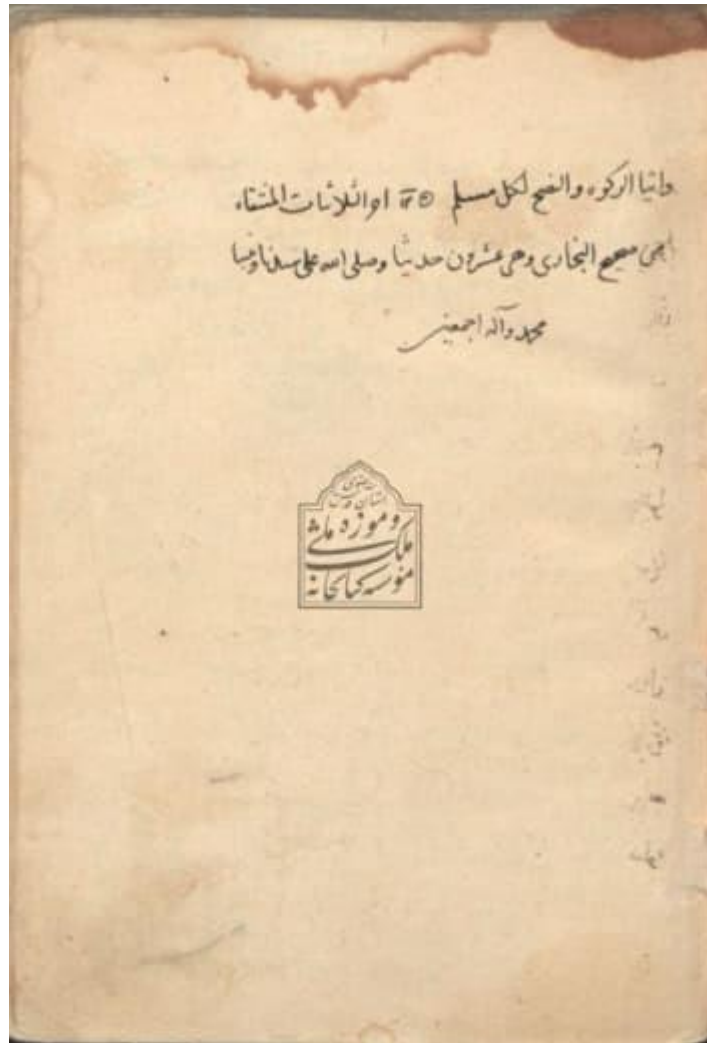 وايتا الزكوة والنصح لكل مسلم اخر الثلاثيات المنتقاه
صحيح البخارى وهى عشرون حديثا وصلى الله على سيدنا ونبينا
محمد وآله اجمعين
موسسه کتابخانه
و موزه ملی
ملک